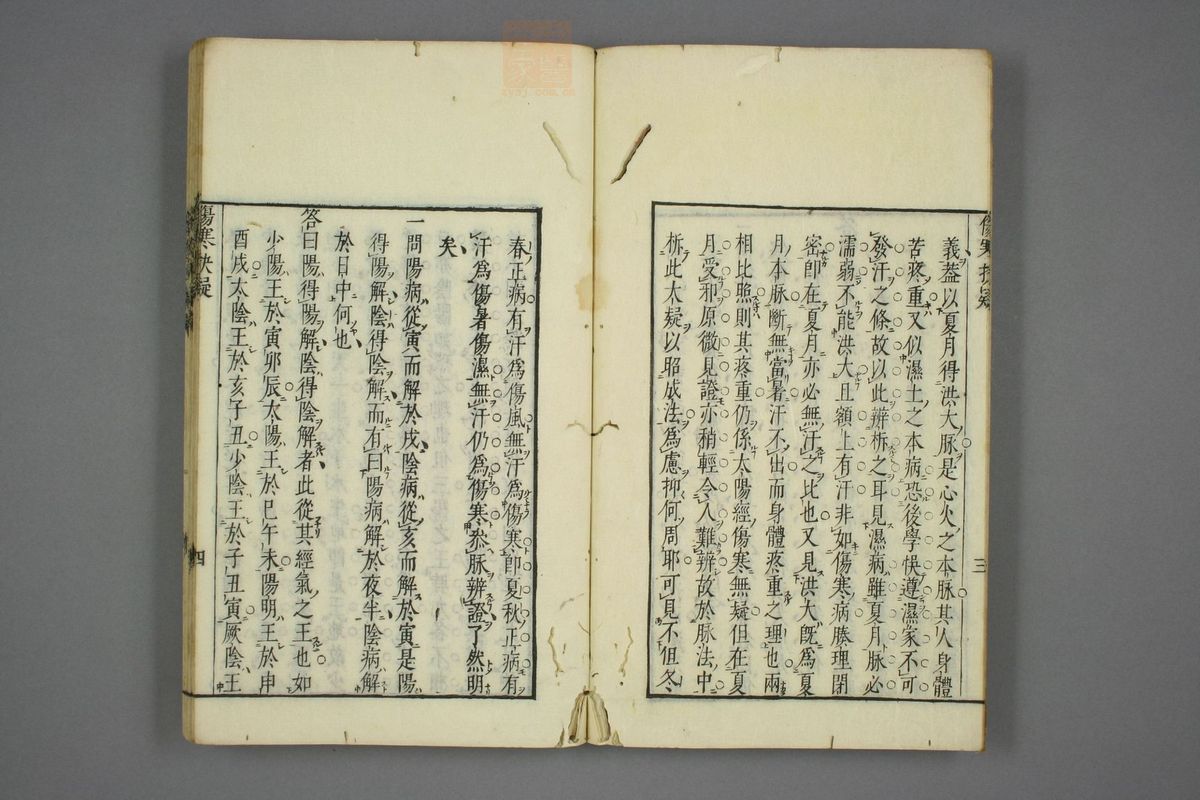 義蓋以夏月得洪大脉是心火之本脉其人身體
苦疼重又似濕土之本病恐後學悞遵濕家不可
發汗之條故以此辨析之耳見濕病雖夏月脉必
濡弱不能洪大且額上有汗非如傷寒病腠理閉
密卽在夏月亦必無汗之比也又見洪大旣爲夏
月本脉斷無當暑汗不出而身體疼重之理也兩
相比照則其疼重仍係太陽經傷寒無疑但在夏
月受邪原微見證亦稍輕令人難辨故於脉法中
析此大疑以昭成法爲慮抑何周耶可見不但冬
三
春正病有汗爲傷風無汗爲傷寒卽夏秋正病有
汗爲傷暑傷濕無汗仍爲傷寒叅脉辨證了然明
矣
一問陽病從寅而解於戌陰病從亥而解於寅是陽
得陽解陰得陰解而有曰陽病解於夜半陰病解
於日中何也
答曰陽得陽解陰得陰解者此從其經氣之王也如
少陽王於寅卯辰太陽王於巳午未陽明王於申
酉戌太陰王於亥子丑少陰王於子丑寅厥陰王
傷寒抉疑
四